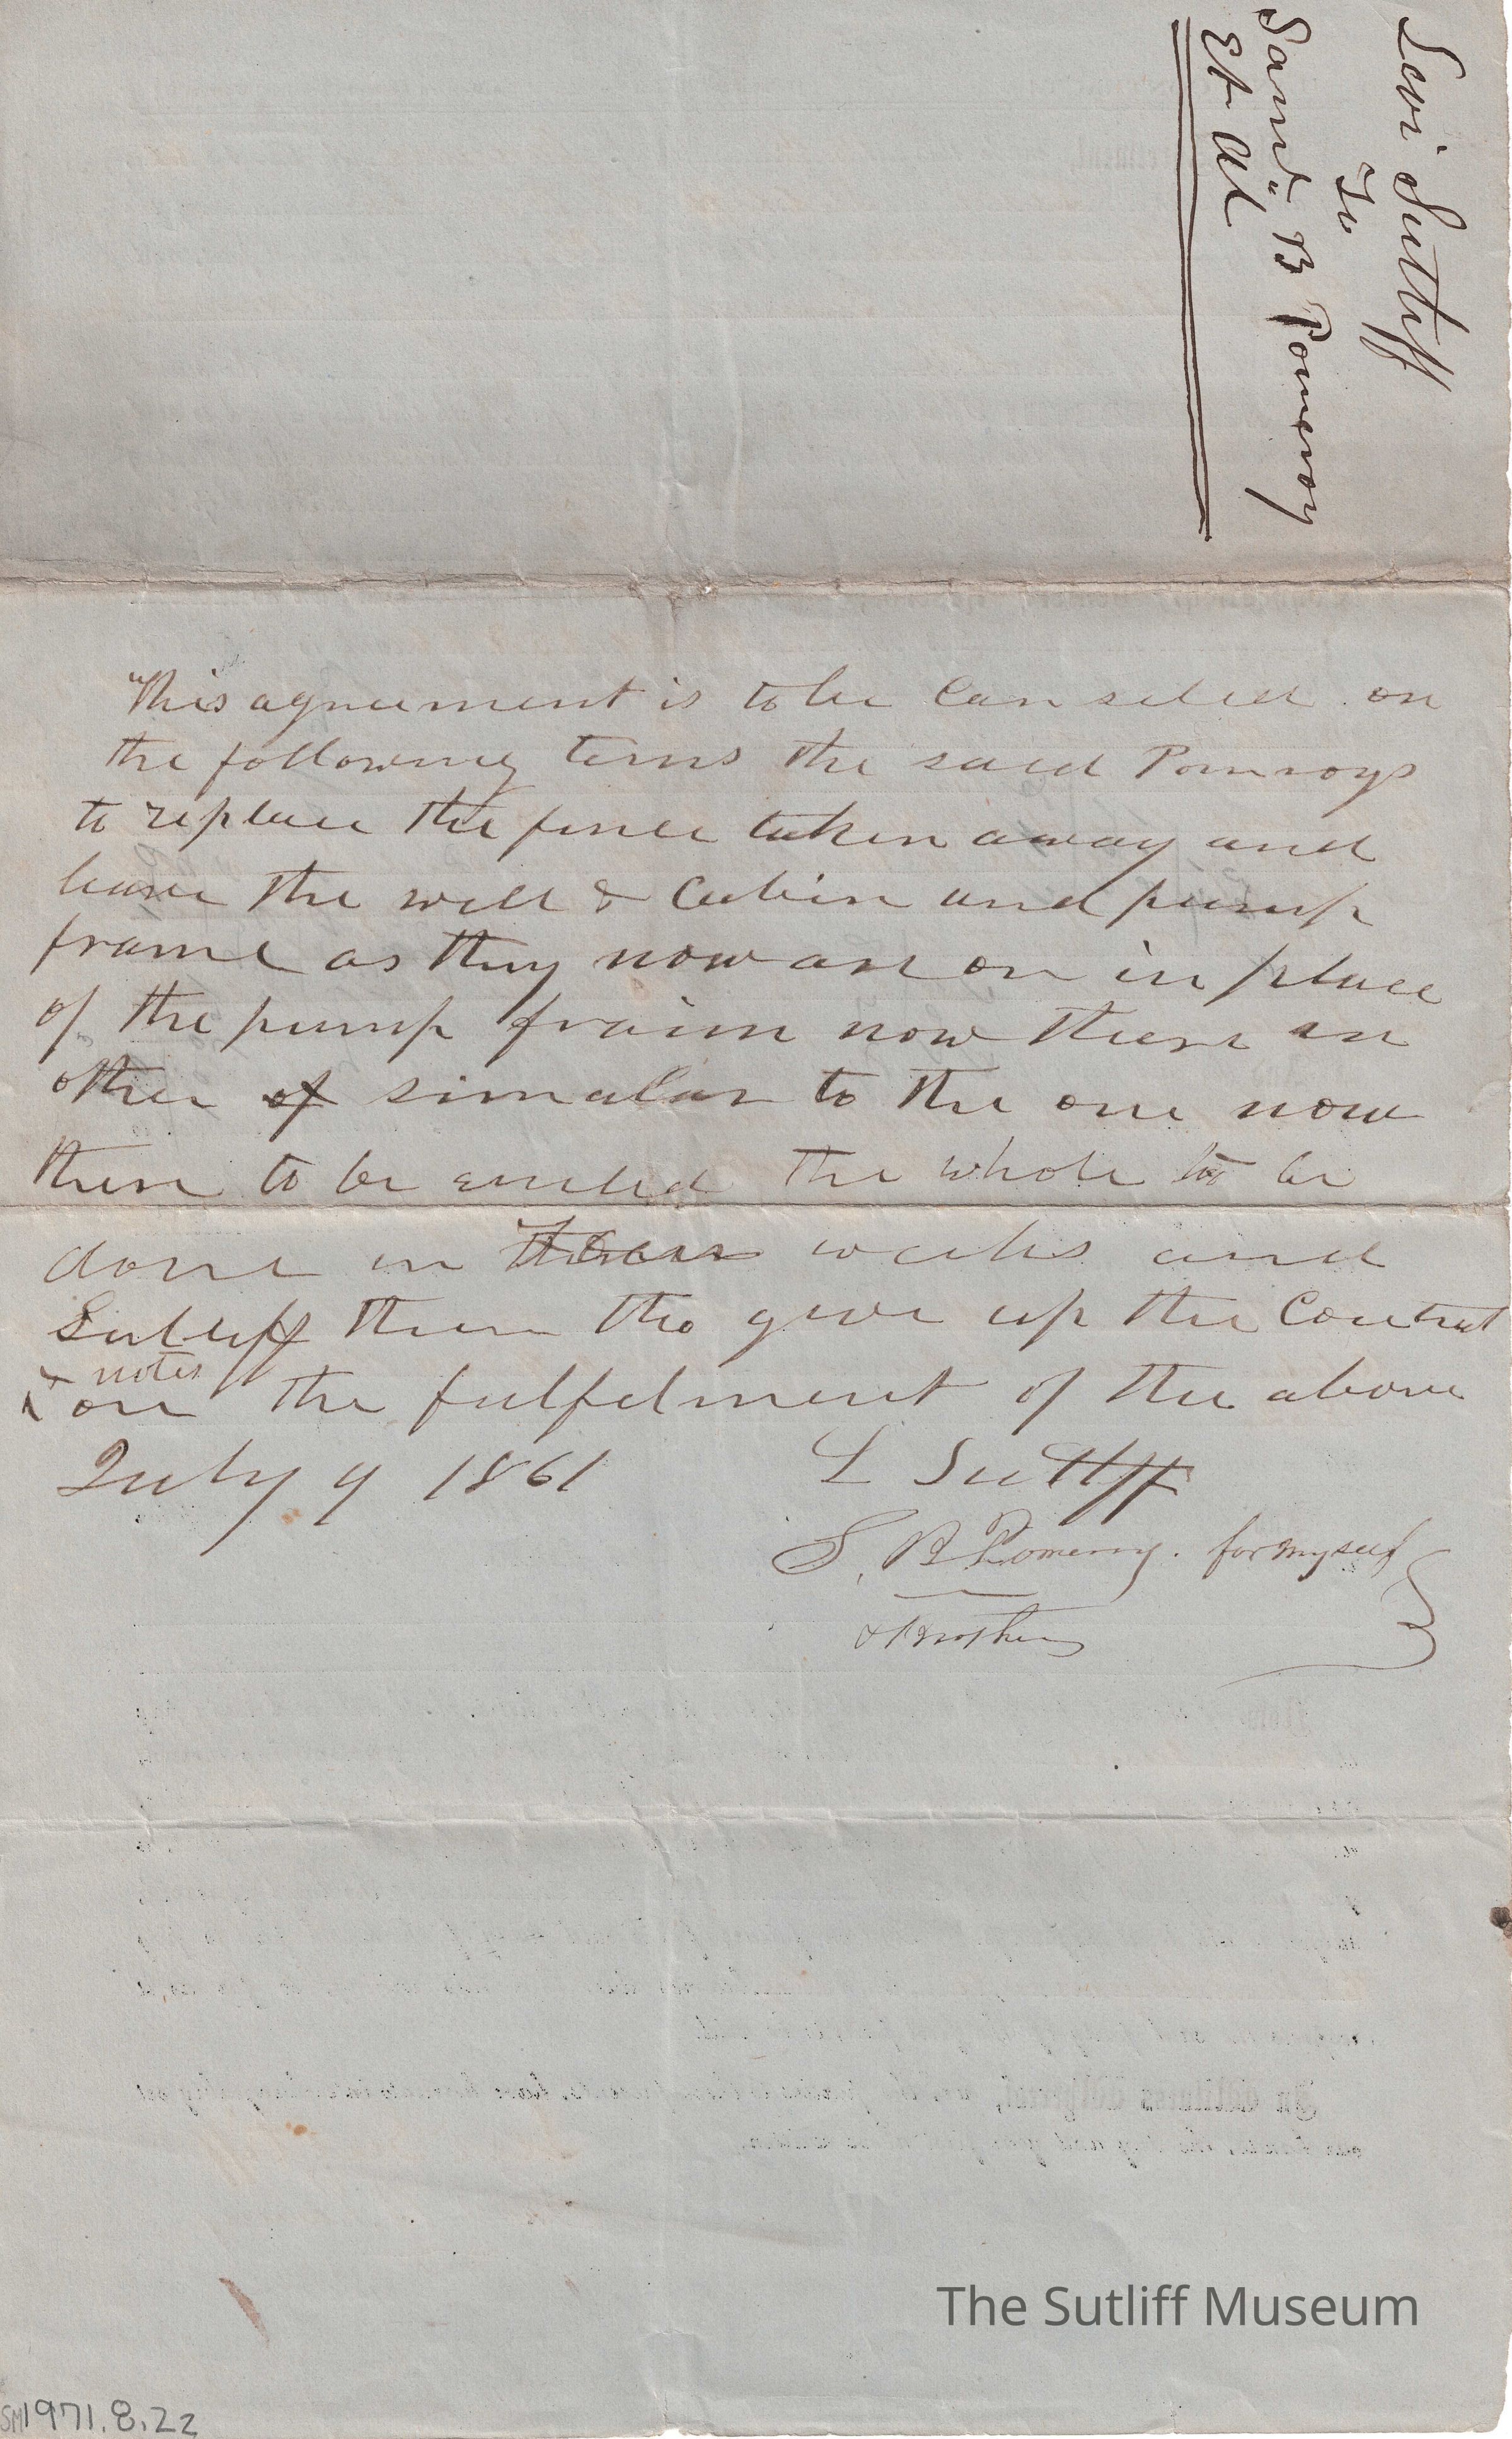 Levi Sutliff
To
Saml. B Pomeroy
Et Al
This agreement is to be Canseled on
the following terms the said Pomroys
to replace the fence taken away and
leave the well & Cabin and pump
frame as they now are or in place
of the pump fraim now there an
other of simalar to the one now
there to be erected the whole to be
done in weeks and
Sutliff then tho give up the Contract
& notes
on the fulfelment of the above
July 9 1861 L Sutliff
S. B Pomeroy. for myself
& Brothers
In Witness Whereof,
The Sutliff Museum
SM1971.8.22